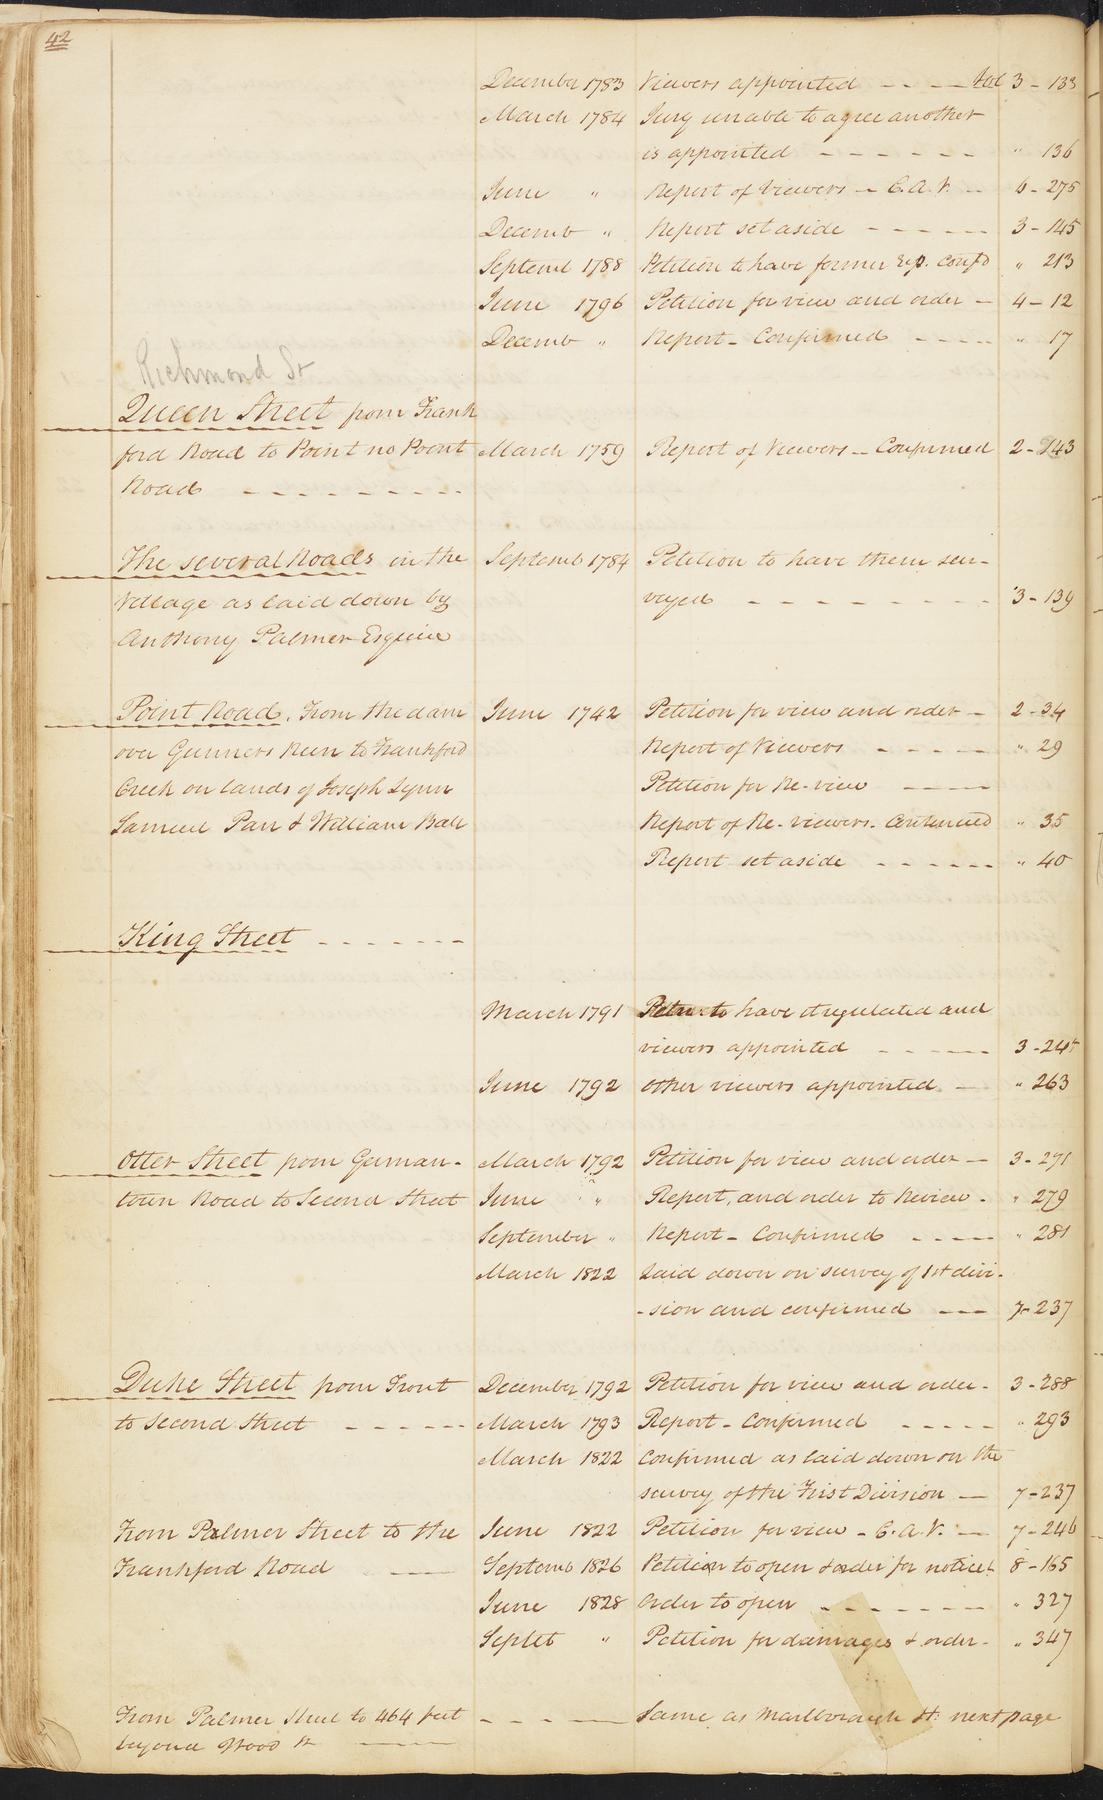 42
December 1783 Viewers appointed - - - Vol 3 - 133
March 1784 Jury unable to agree another
is appointed - - - - - - " 136
June " Report of Viewers - C.A.V. - 6 - 275
Decemb " Report set aside - - - - - 3 - 145
Septemb 1788 Petition to have former rep. conf'd " 213
June 1796 Petition for view and order - 4 - 12
Decemb " Report - Confirmed - - - - " 17
Richmond St
Queen Street from Frank
ford Road to Point no Point March 1759 Report of Viewers - Confirmed 2 - 143
Road - - - - - - -
The several Roads in the Septemb 1784 Petition to have them sur-
Village as laid down by veyed - - - - - - - - - 3 - 139
Anthony Palmer Esquire
Point Road. From the dam June 1742 Petition for view and order - 2 - 34
over Gunners Run to Frankford Report of Viewers - - - - - " 29
Creek on lands of Joseph Lynn Petition for Re-view - - - -
Samuel Parr & William Ball Report of Re-viewers. Continued " 35
Report set aside - - - - - - " 40
King Street - - - - - - -
March 1791 to have it regulated and
viewers appointed - - - - - 3 - 24
June 1792 Other viewers appointed - " 263
Otter Street from German- March 1792 Petition for view and order - 3 - 271
town Road to Second Street June " Report, and order to Review. " 279
September " Report - Confirmed - - - - " 281
March 1822 Laid down on survey of 1st divi-
-sion and confirmed - - - 7 - 237
Duke Street from Front December 1792 Petition for view and order. 3 - 288
to Second Street - - - - - March 1793 Report - Confirmed - - - - - " 293
March 1822 Confirmed as laid down on the
survey of the First Division - 7 - 237
From Palmer Street to the June 1822 Petition for view - C.A.V. - 7 - 246
Frankford Road Septemb 1826 Petition to open & order for notice 8 - 165
June 1828 Order to open - - - - - - - " 327
Septbt " Petition for damages & order - " 347
From Palmer Street to 464 feet - - - - Same as Marlborough St. next page
beyond Wood St